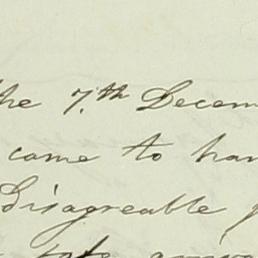 the 7.th Decem
came to han
Disagreable